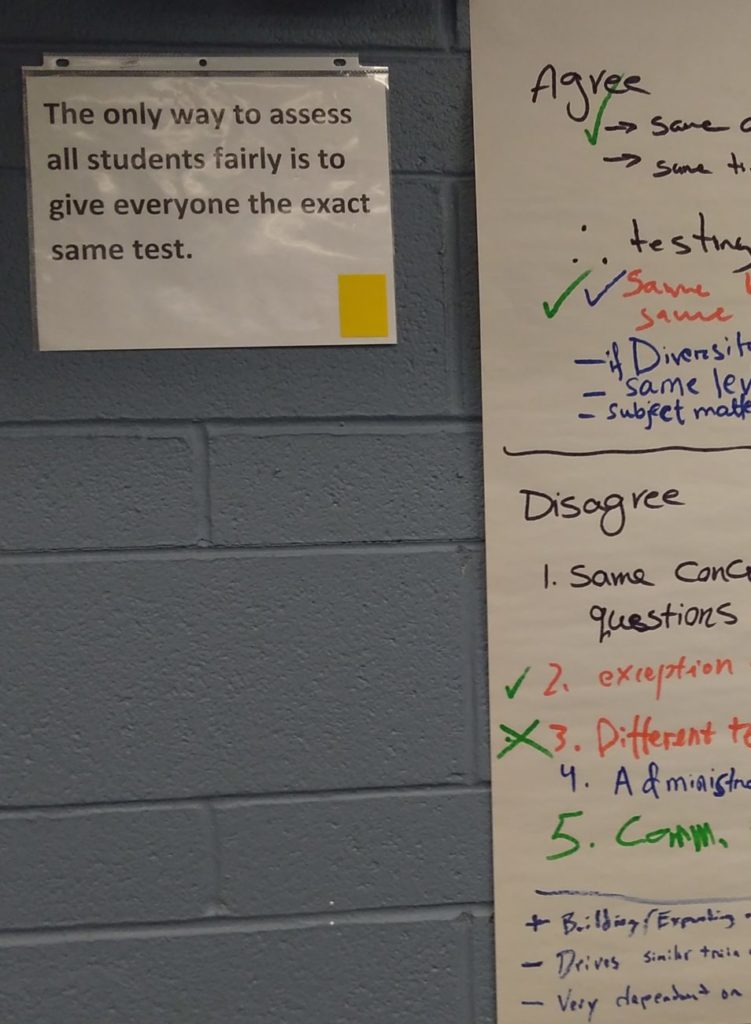 The only way to assess
all students fairly is to
give everyone the exact
same test.
Agree
→ same
→ same
∴ testing
same
same
- if Diversit
- same lev
- subject matte
Disagree
1. Same Conc
questions
2. exception
3. Different te
4. Administra
5. Comm.
+ Building/Expanding
- Drives similar train
- Very dependent on